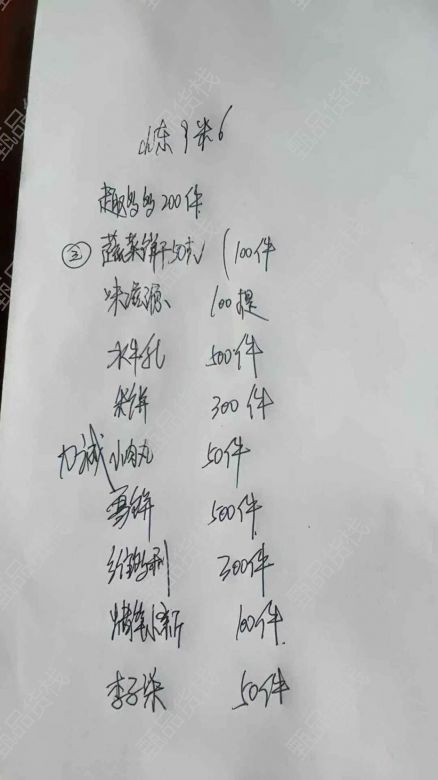 山东9米6
趣多多200件
③ 蔬菜饼干50支 100件
味滋源 100提
水牛乳 500件
米饼 300件
力诚小肉丸 50件
雪饼 500件
300件
小新 100件
李子柒 50件
甄品货栈